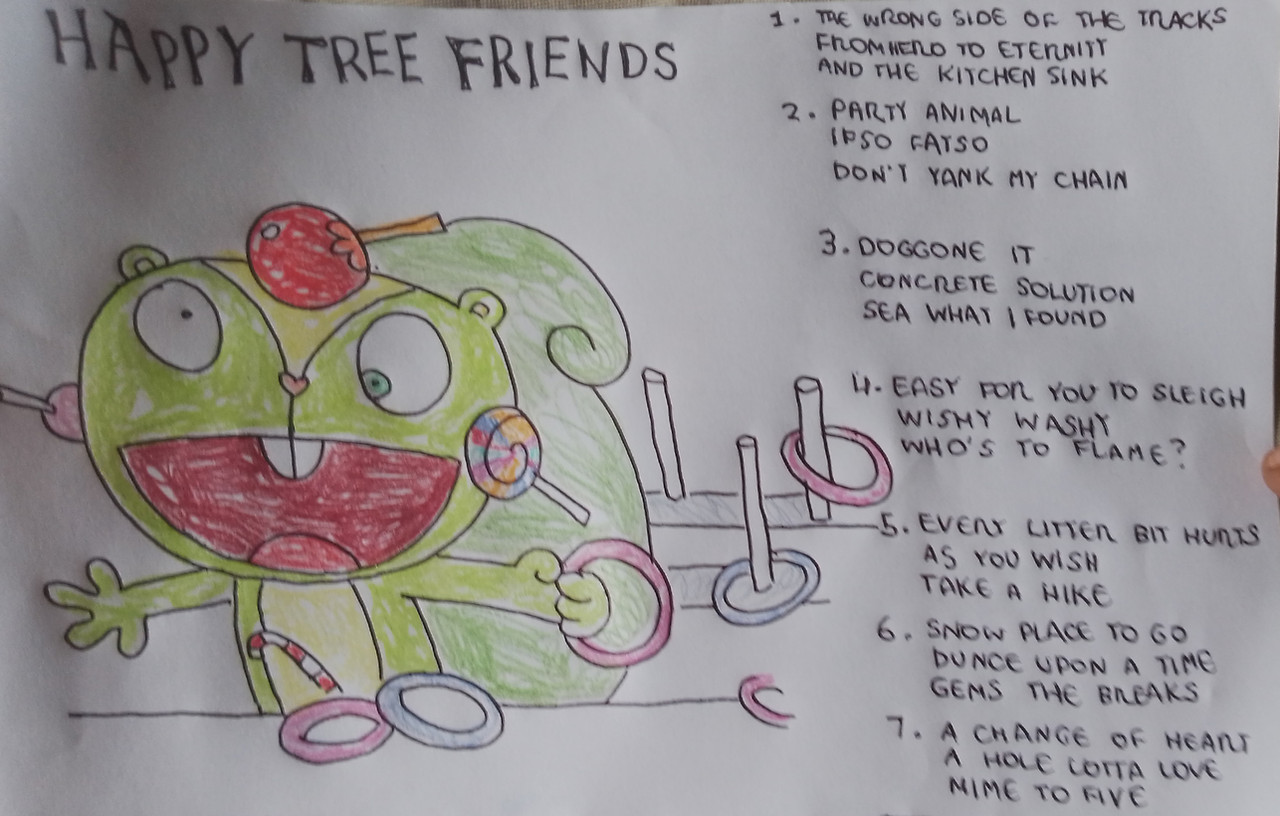 HAPPY TREE FRIENDS
1. THE WRONG SIDE OF THE TRACKS
FROM HERO TO ETERNITY
AND THE KITCHEN SINK
2. PARTY ANIMAL
IPSO FATSO
DON'T YANK MY CHAIN
3. DOGGONE IT
CONCRETE SOLUTION
SEA WHAT I FOUND
4. EASY FOR YOU TO SLEIGH
WISHY WASHY
WHO'S TO FLAME?
5. EVERY LITTER BIT HURTS
AS YOU WISH
TAKE A HIKE
6. SNOW PLACE TO GO
DUNCE UPON A TIME
GEMS THE BREAKS
7. A CHANGE OF HEART
A HOLE LOTTA LOVE
MIME TO FIVE